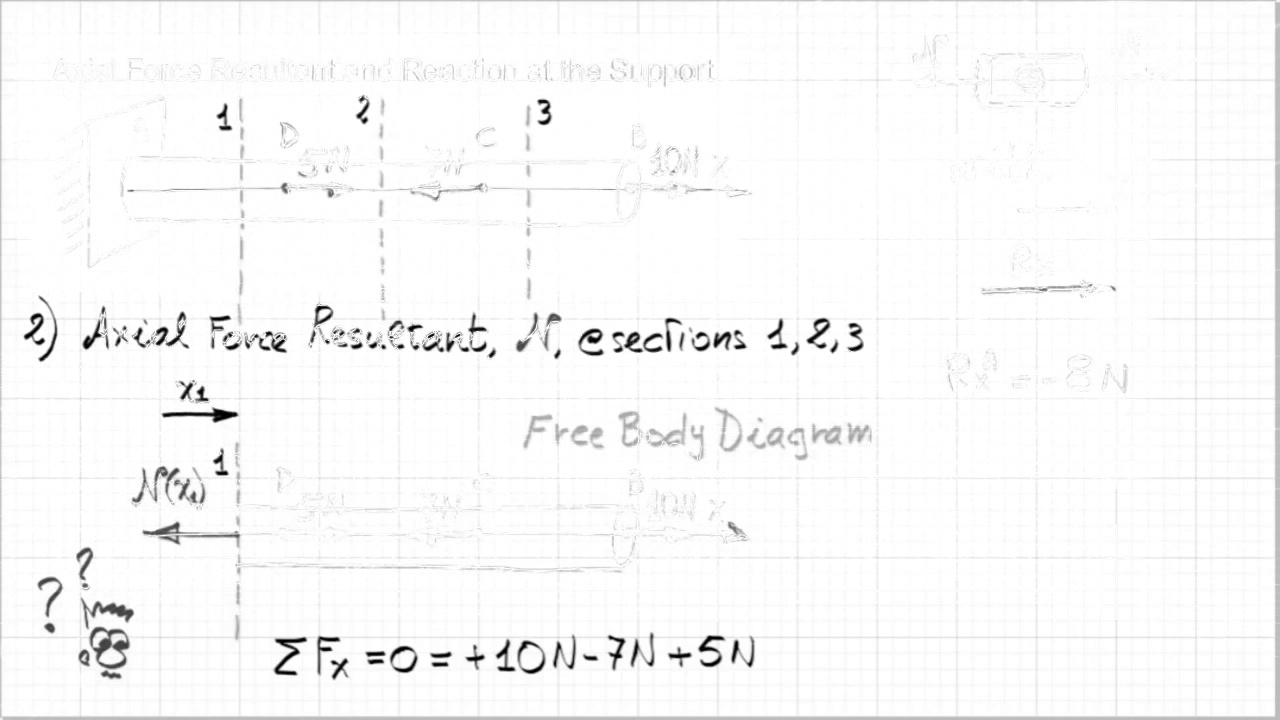 Axial Force Resultant and Reaction at the Support
1 2 3
A D 5N 7N C B 10N x
Rx
RxA = -8N
2) Axial Force Resultant, N, @sections 1, 2, 3
x1
Free Body Diagram
1
N(x1) D 5N 7N C B 10N x
? ?
ΣFx = 0 = +10N - 7N + 5N